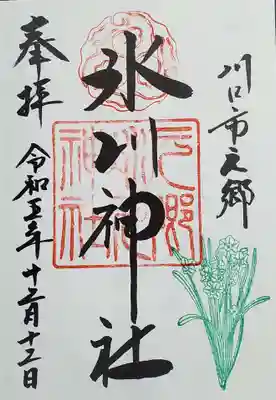 川口市元郷
氷川神社
奉拝
令和五年十二月十二日